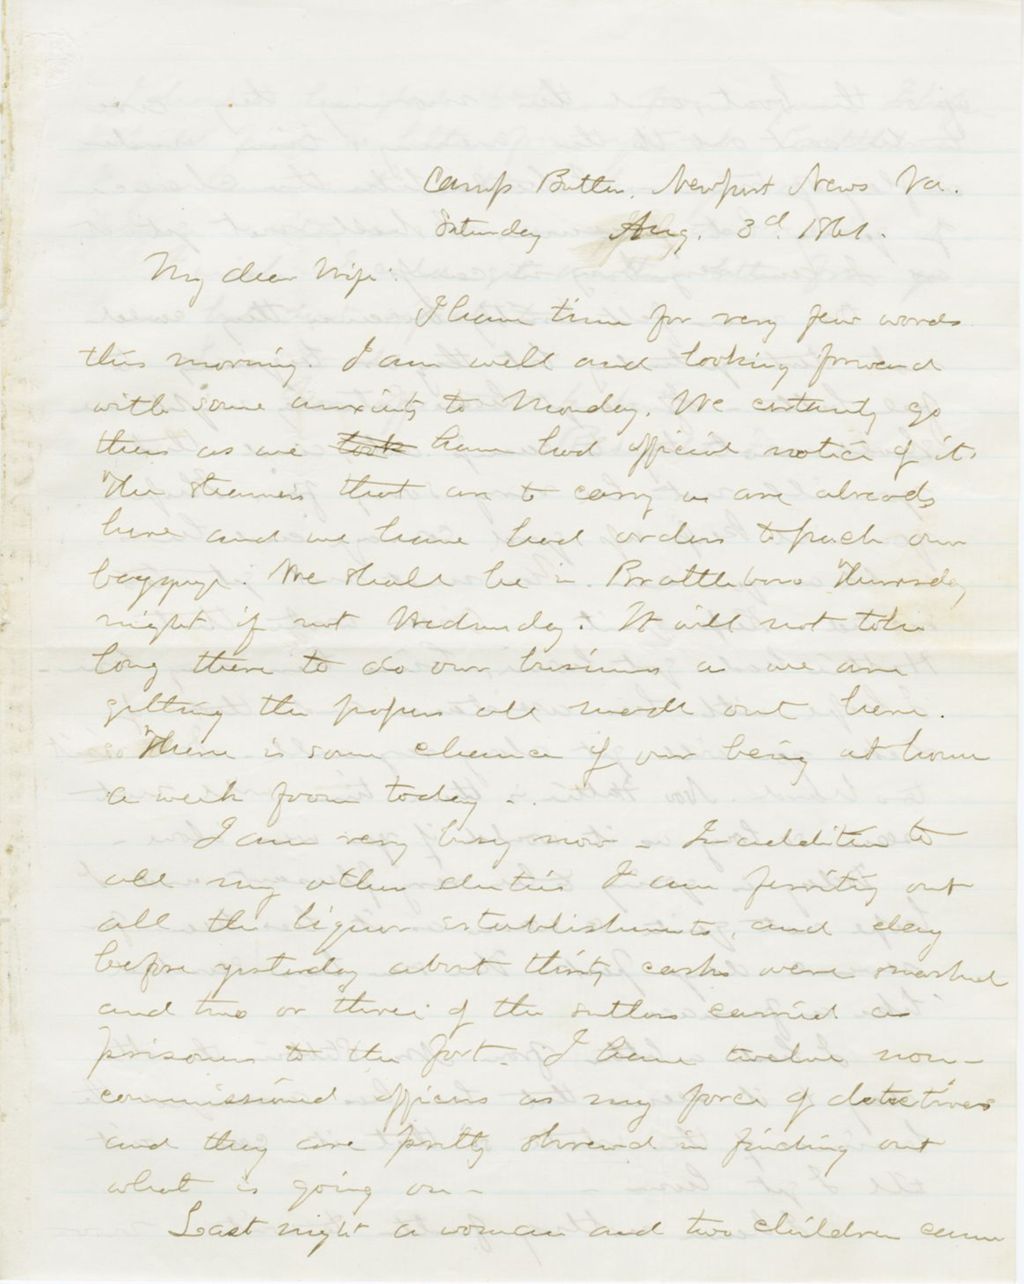 Camp Butler, Newport News Va.
Saturday Aug. 3d. 1861.
My dear Wife:
I have time for very few words
this morning. I am well and looking forward
with some anxiety to Monday. We certainly go
then as we took have had official notice of it.
The steamers that are to carry us are already
here and we have had orders to pack our
baggage. We shall be in Brattleboro Thursday
night if not Wednesday. It will not take
long there to do our business as we are
getting the papers all made out here.
There is some chance of our being at home
a week from today.
I am very busy now - In addition to
all my other duties I am ferriting out
all the liquor establishments, and day
before yesterday about thirty casks were smashed
and two or three of the sutlers carried as
prisoners to the fort. I have twelve non-
commissioned officers as my force of detectives
and they are pretty shrewd in finding out
what is going on -
Last night a woman and two children came